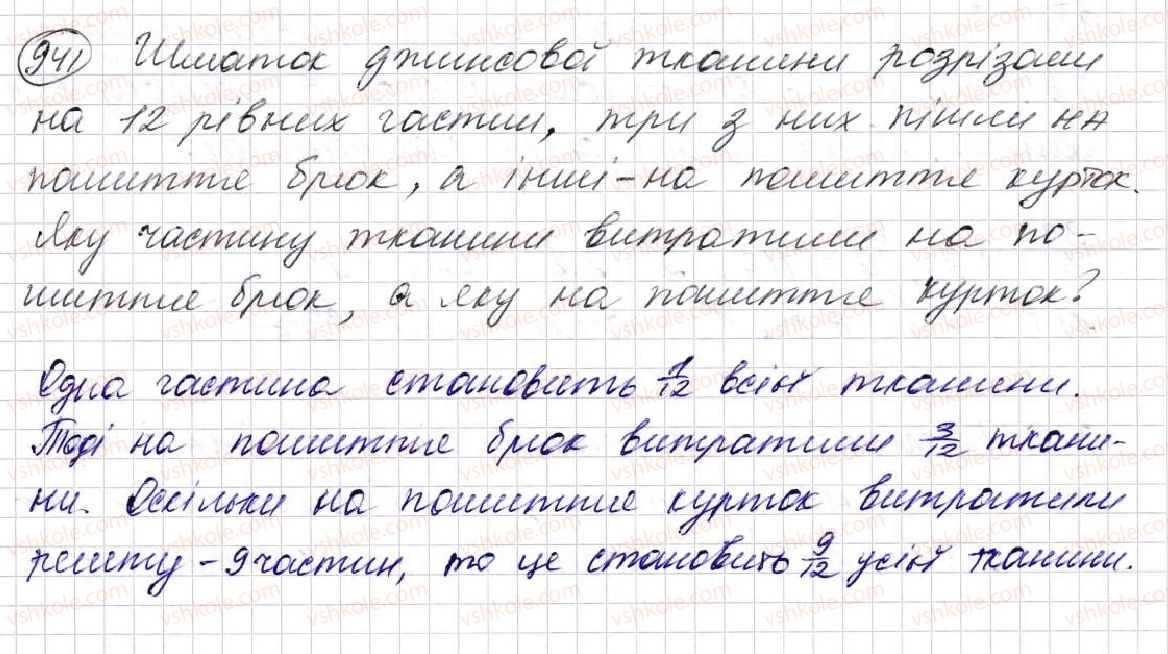 941 Шматок джинсової тканини розрізали
на 12 рівних частин, три з них пішли на
пошиття брюк, а інші - на пошиття курток.
Яку частину тканини витратили на по-
шиття брюк, а яку на пошиття курток?
Одна частина становить 1/12 всієї тканини.
Тоді на пошиття брюк витратили 3/12 ткани-
ни. Оскільки на пошиття курток витратили
решту - 9 частин, то це становить 9/12 усієї тканини.